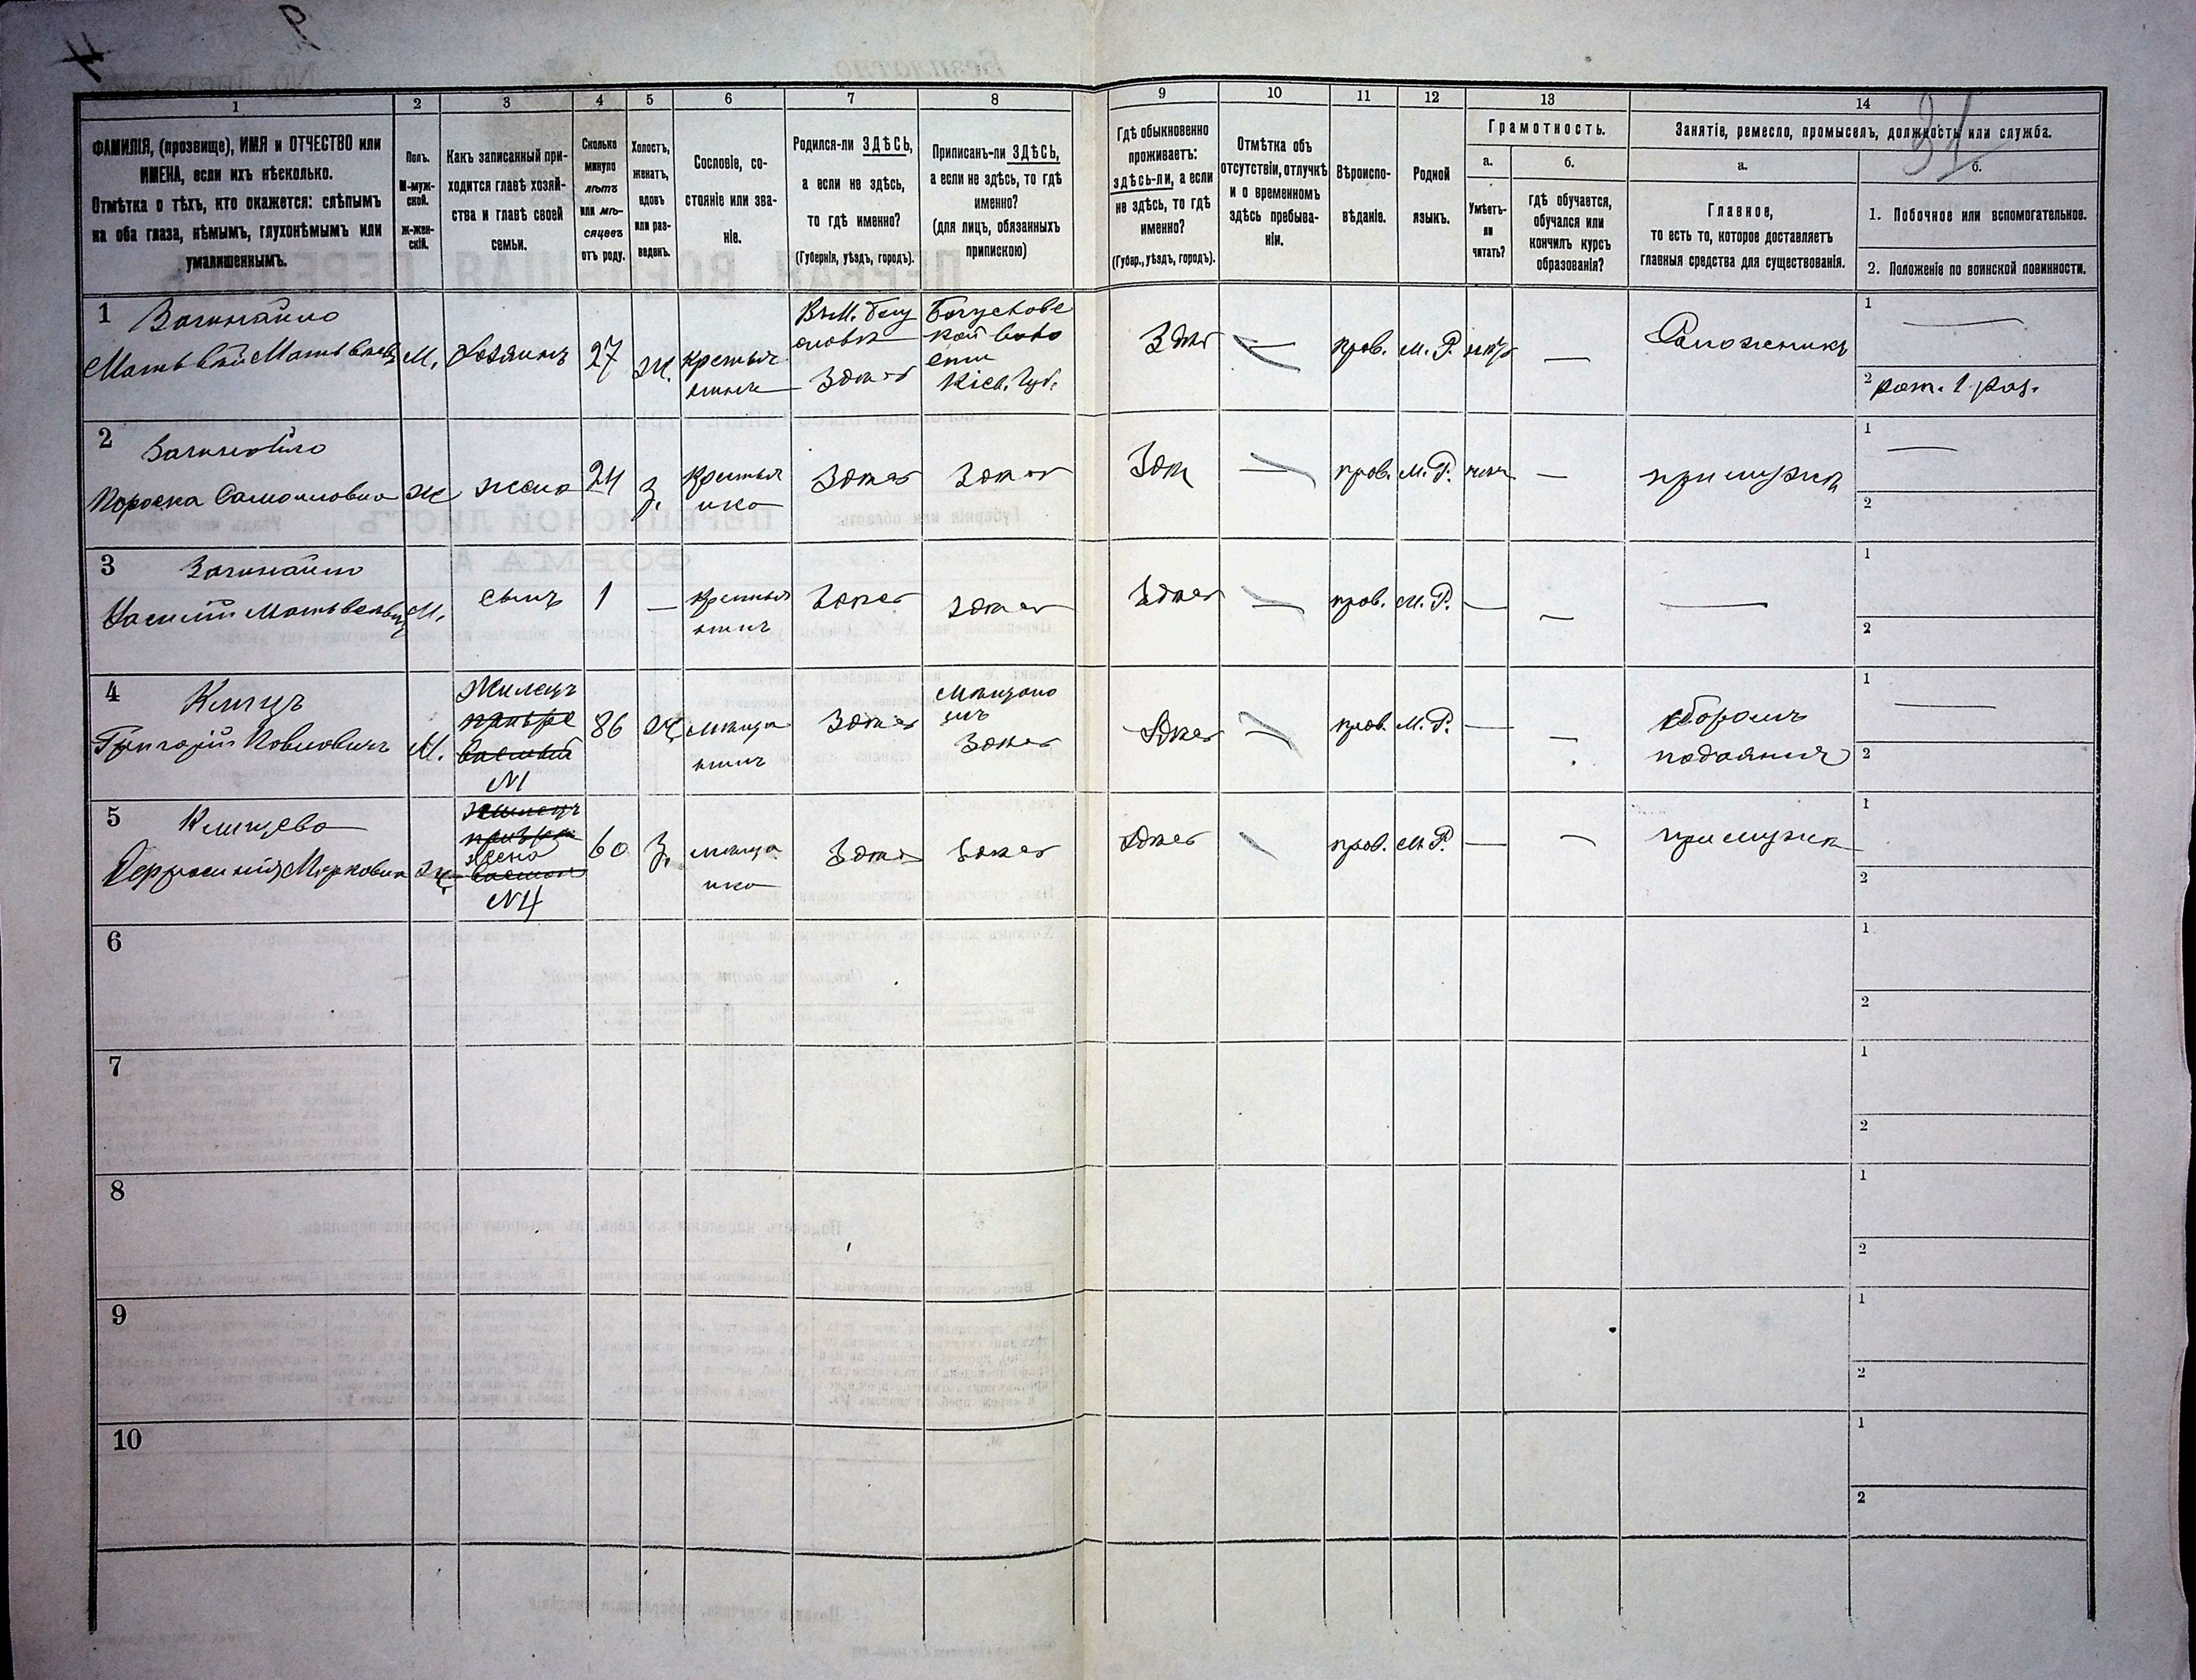 1 2 3 4 5 6 7 8 9 10 11 12 13 14
31
ФАМИЛІЯ, (прозвище), ИМЯ и ОТЧЕСТВО или
ИМЕНА, если ихъ нѣсколько.
Отмѣтка о тѣхъ, кто окажется: слѣпымъ
на оба глаза, нѣмымъ, глухонѣмымъ или
умалишеннымъ.
Полъ.
М-муж-
ской.
Ж-жен-
скій.
Какъ записанный при-
ходится главѣ хозяй-
ства и главѣ своей
семьи.
Сколько
минуло
лѣтъ
или мѣ-
сяцевъ
отъ роду.
Холостъ,
женатъ,
вдовъ
или раз-
веденъ.
Сословіе, со-
стояніе или зва-
ніе.
Родился-ли ЗДѢСЬ,
а если не здѣсь,
то гдѣ именно?
(Губернія, уѣздъ, городъ).
Приписанъ-ли ЗДѢСЬ,
а если не здѣсь, то гдѣ
именно?
(для лицъ, обязанныхъ
припискою)
Гдѣ обыкновенно
проживаетъ:
здѣсь-ли, а если
не здѣсь, то гдѣ
именно?
(Губер., уѣздъ, городъ).
Отмѣтка объ
отсутствіи, отлучкѣ
и о временномъ
здѣсь пребыва-
ніи.
Вѣроиспо-
вѣданіе.
Родной
языкъ.
Грамотность.
а.
Умѣетъ-
ли
читать?
б.
Гдѣ обучается,
обучался или
кончилъ курсъ
образованія?
Занятіе, ремесло, промыселъ, должность или служба.
а.
Главное,
то есть то, которое доставляетъ
главныя средства для существованія.
б.
1. Побочное или вспомогательное.
2. Положеніе по воинской повинности.
1
Матьвѣй Матьвѣевъ
М.
Хозяинъ
27
Ж.
крестья
нинъ
Въ М. Богу
славѣ
Здѣсь
Богуславс
кой воло
сти
Кіев. Губ.
Здѣсь
—
прав.
М. Р.
нѣтъ
—
Сапожникъ
1 —
2 рат. 1 раз.
2
Параска Самойловна
Ж
жена
24
З.
Крестья
нка
Здѣсь
Здѣсь
Здѣсь
—
прав.
М. Р.
—
при мужѣ
1 —
2
3
Василій Матьвѣевъ
М.
сынъ
1
—
крестья
нинъ
Здѣсь
Здѣсь
Здѣсь
—
прав.
М. Р.
—
—
—
1
2
4
Григорій Павловичъ
М.
Жилецъ
N1
86
Ж
мѣща
нинъ
Здѣсь
Здѣсь
Здѣсь
—
прав.
М. Р.
—
—
сборомъ
подаянія
1 —
2
5
Марковна
Ж
жена
N4
60
З.
мѣща
нка
Здѣсь
Здѣсь
Здѣсь
прав.
М. Р.
—
—
при мужѣ
1
2
6
1
2
7
1
2
8
1
2
9
1
2
10
1
2